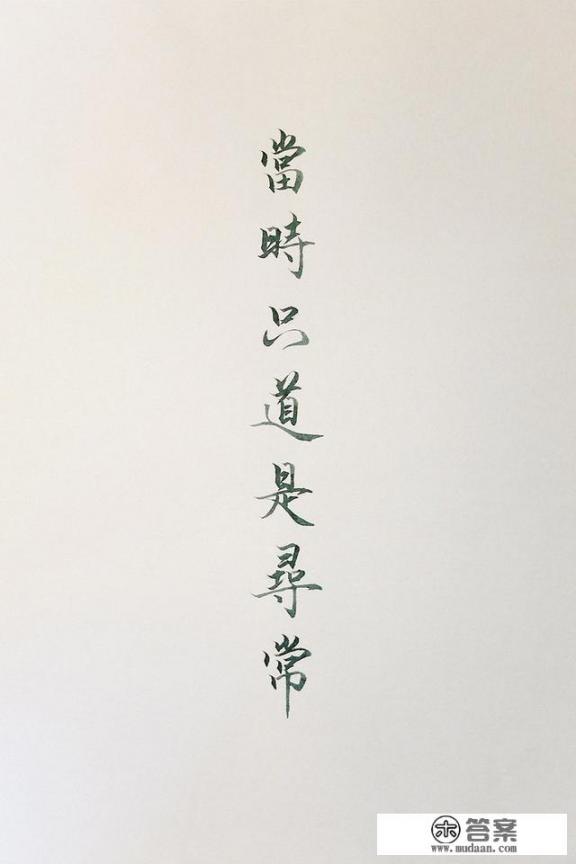 當時只道是尋常
答案
www.mudaan.com